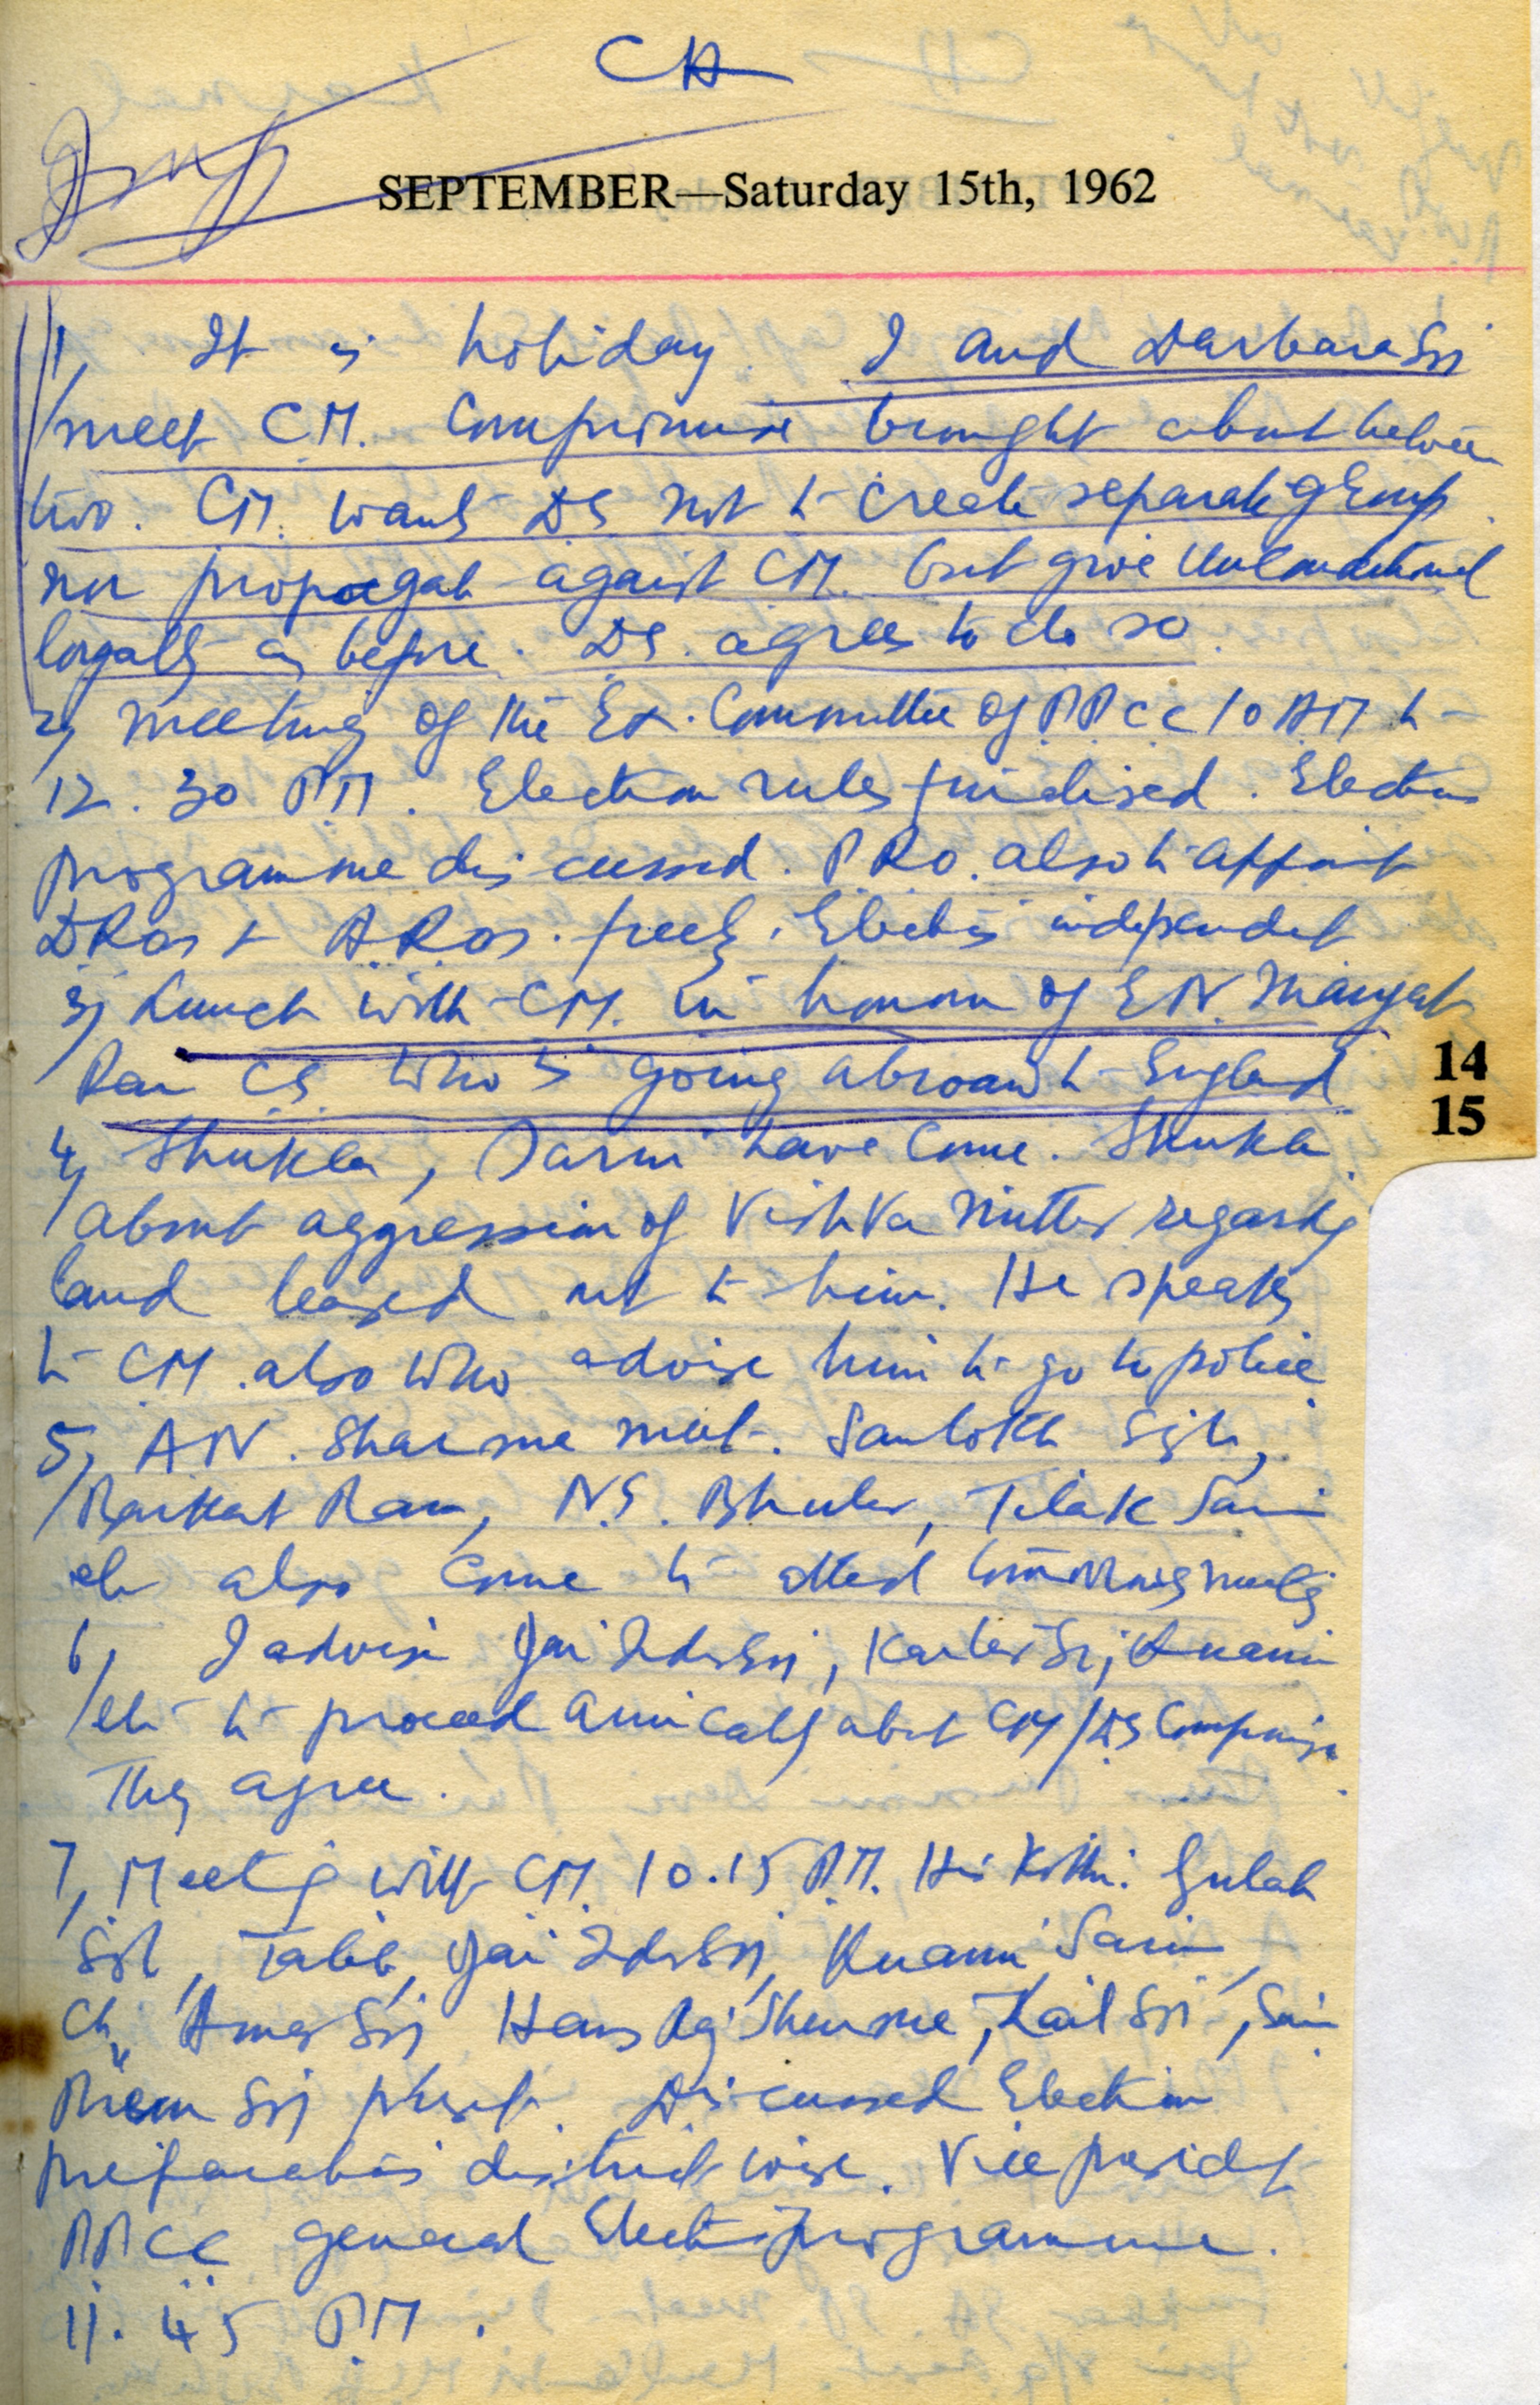 CH
SEPTEMBER—Saturday 15th, 1962
1, It is holiday. I and Darbara Sn
meet CM. Compromise brought about between
two. CM. wants DS not to create separate group
nor propagate against CM. but give unconditional
loyalty as before. DS. agrees to do so.
2, Meeting of the Ex. Committee of PPCC 10 AM to
12.30 PM. Election rules finalised. Election
programme discussed. PRO. also to appoint
DROs & AROs. freely. Election independent
3, Lunch with CM. in honour of E.N. Mangat
Rai CS who is going abroad to England
4, Shukla, Sarin have come. Shukla
about aggression of Vishva Mitter regarding
land leased out to him. He speaks
to CM also who advise him to go to police
5, AN. Sharma meet. Santokh Sgh,
Barkat Ram, N.S. Bhuler, Tilak
etc also come to attend meeting
6, I advise Jai Inder Sn, Kartar Sn,
etc to proceed amicably about CM/DS Compromise
They agree.
7, Meeting with CM 10.15 PM. His Kothi. Gulab
Sgh, Talib, Jai Inder Sn,
Ch, Amar Sn Hans Raj Sharma,
Prem Sn present. Discussed Election
preparations district wise. Vice president
PPCC general Election programme.
11.45 PM.
14
15